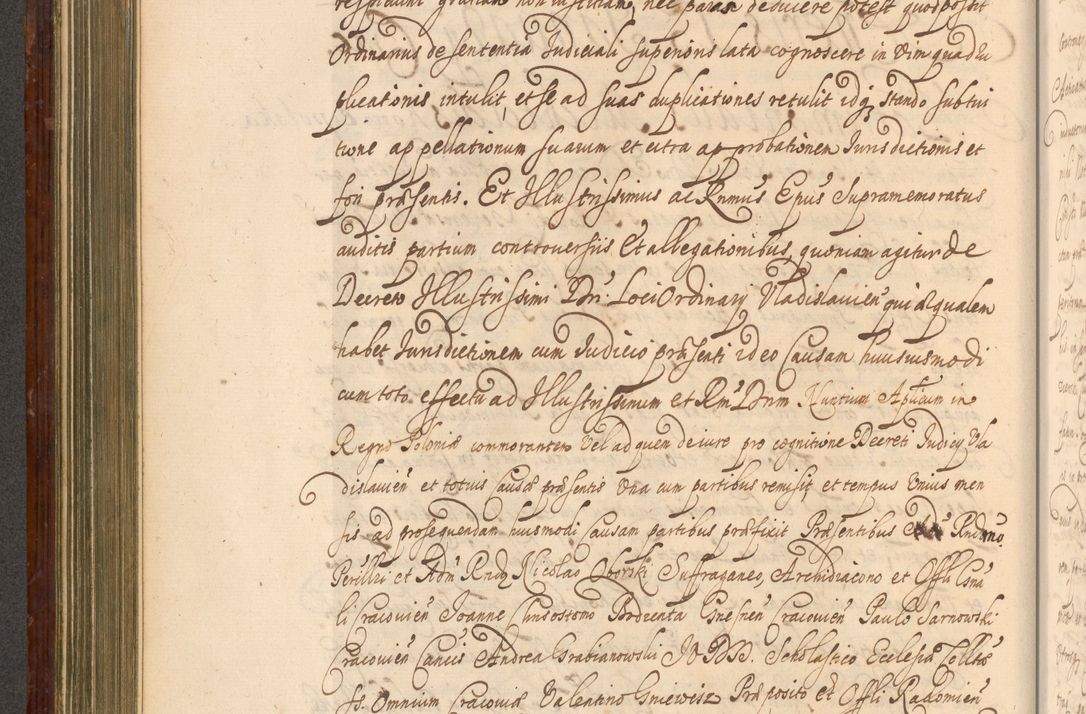 respiciunt gratiam non iustitiam, nec paras deducere potest quod possit
Ordinarius de sententia Iudiciali superioris lata cognoscere in vim quadru
plicationis intulit et se ad suas duplicationes retulit idq; stando subtui
tione appellationum suarum et citra approbationem Iurisdictionis et
fori præsentis. Et Illustrissimus ac Rnmus Epus supramemoratus
auditis partium controversiis Et allegationibus, quoniam agitur de
Decreto Illustrissimi Dni Loci Ordinarij Vladislavien qui æqualem
habet Iurisdictionem cum Iudicio præsenti ideo Causam huiusmodi
cum toto effectu ad Illustrissimum et Rm Dnm Nuntium Aplicum in
Regno Poloniæ commorantem vel ad quem de iure pro cognitione Decreti Iudicij Vla
dislavien et totius Causæ præsentis una cum partibus remisit et tempus unius men
sis ad prosequendam huismodi Causam partibus præfixit Præsentibus Rndmo
Perilli et Adm Rndis Nicolao Oborski Suffraganeo, Archidiacono et Offli Gna
li Cracovien Ioanne Chrisostomo Bodzenta Gnesnen Cracovien Paulo Sarnowski
Cracovien Cancis Andrea Grabianowski I V D. Scholastico Ecclesiæ Colltæ
SS. Omnium Cracoviæ Valentino Gniewisz Præposito et Offli Radomien